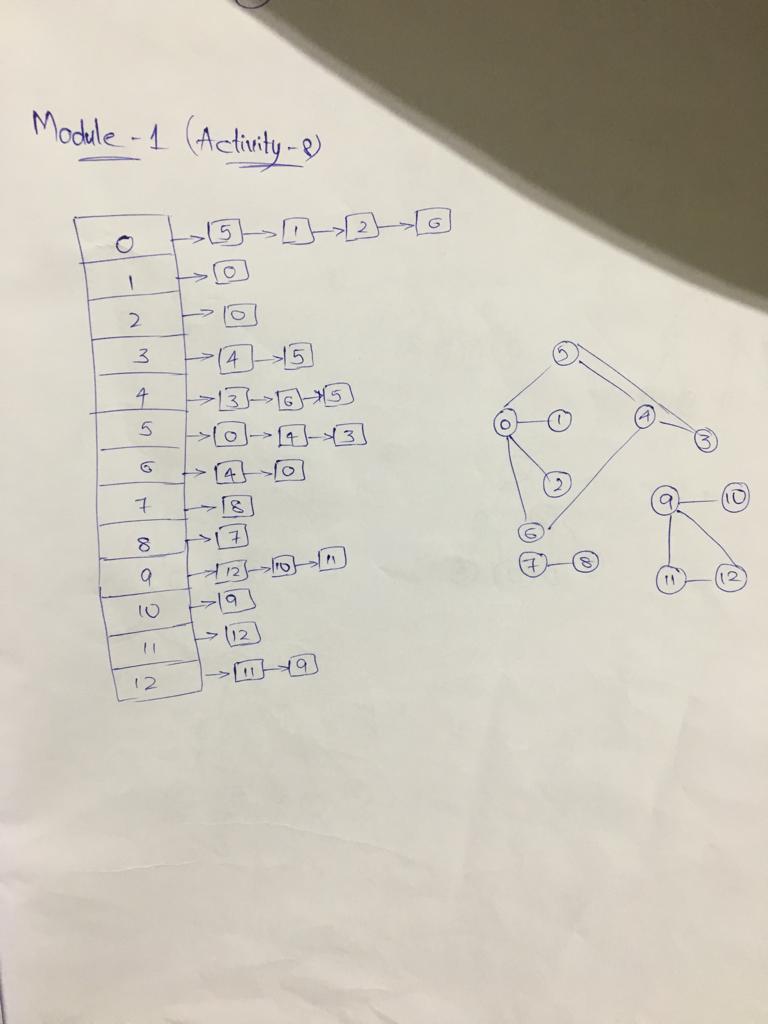 Module-1 (Activity-8)
0 → 5 → 1 → 2 → 6
1 → 0
2 → 0
3 → 4 → 5
4 → 3 → 6 → 5
5 → 0 → 4 → 3
6 → 4 → 0
7 → 8
8 → 7
9 → 12 → 10 → 11
10 → 9
11 → 12
12 → 11 → 9
5
0 1 4 3
2 9 10
6
7 8 11 12